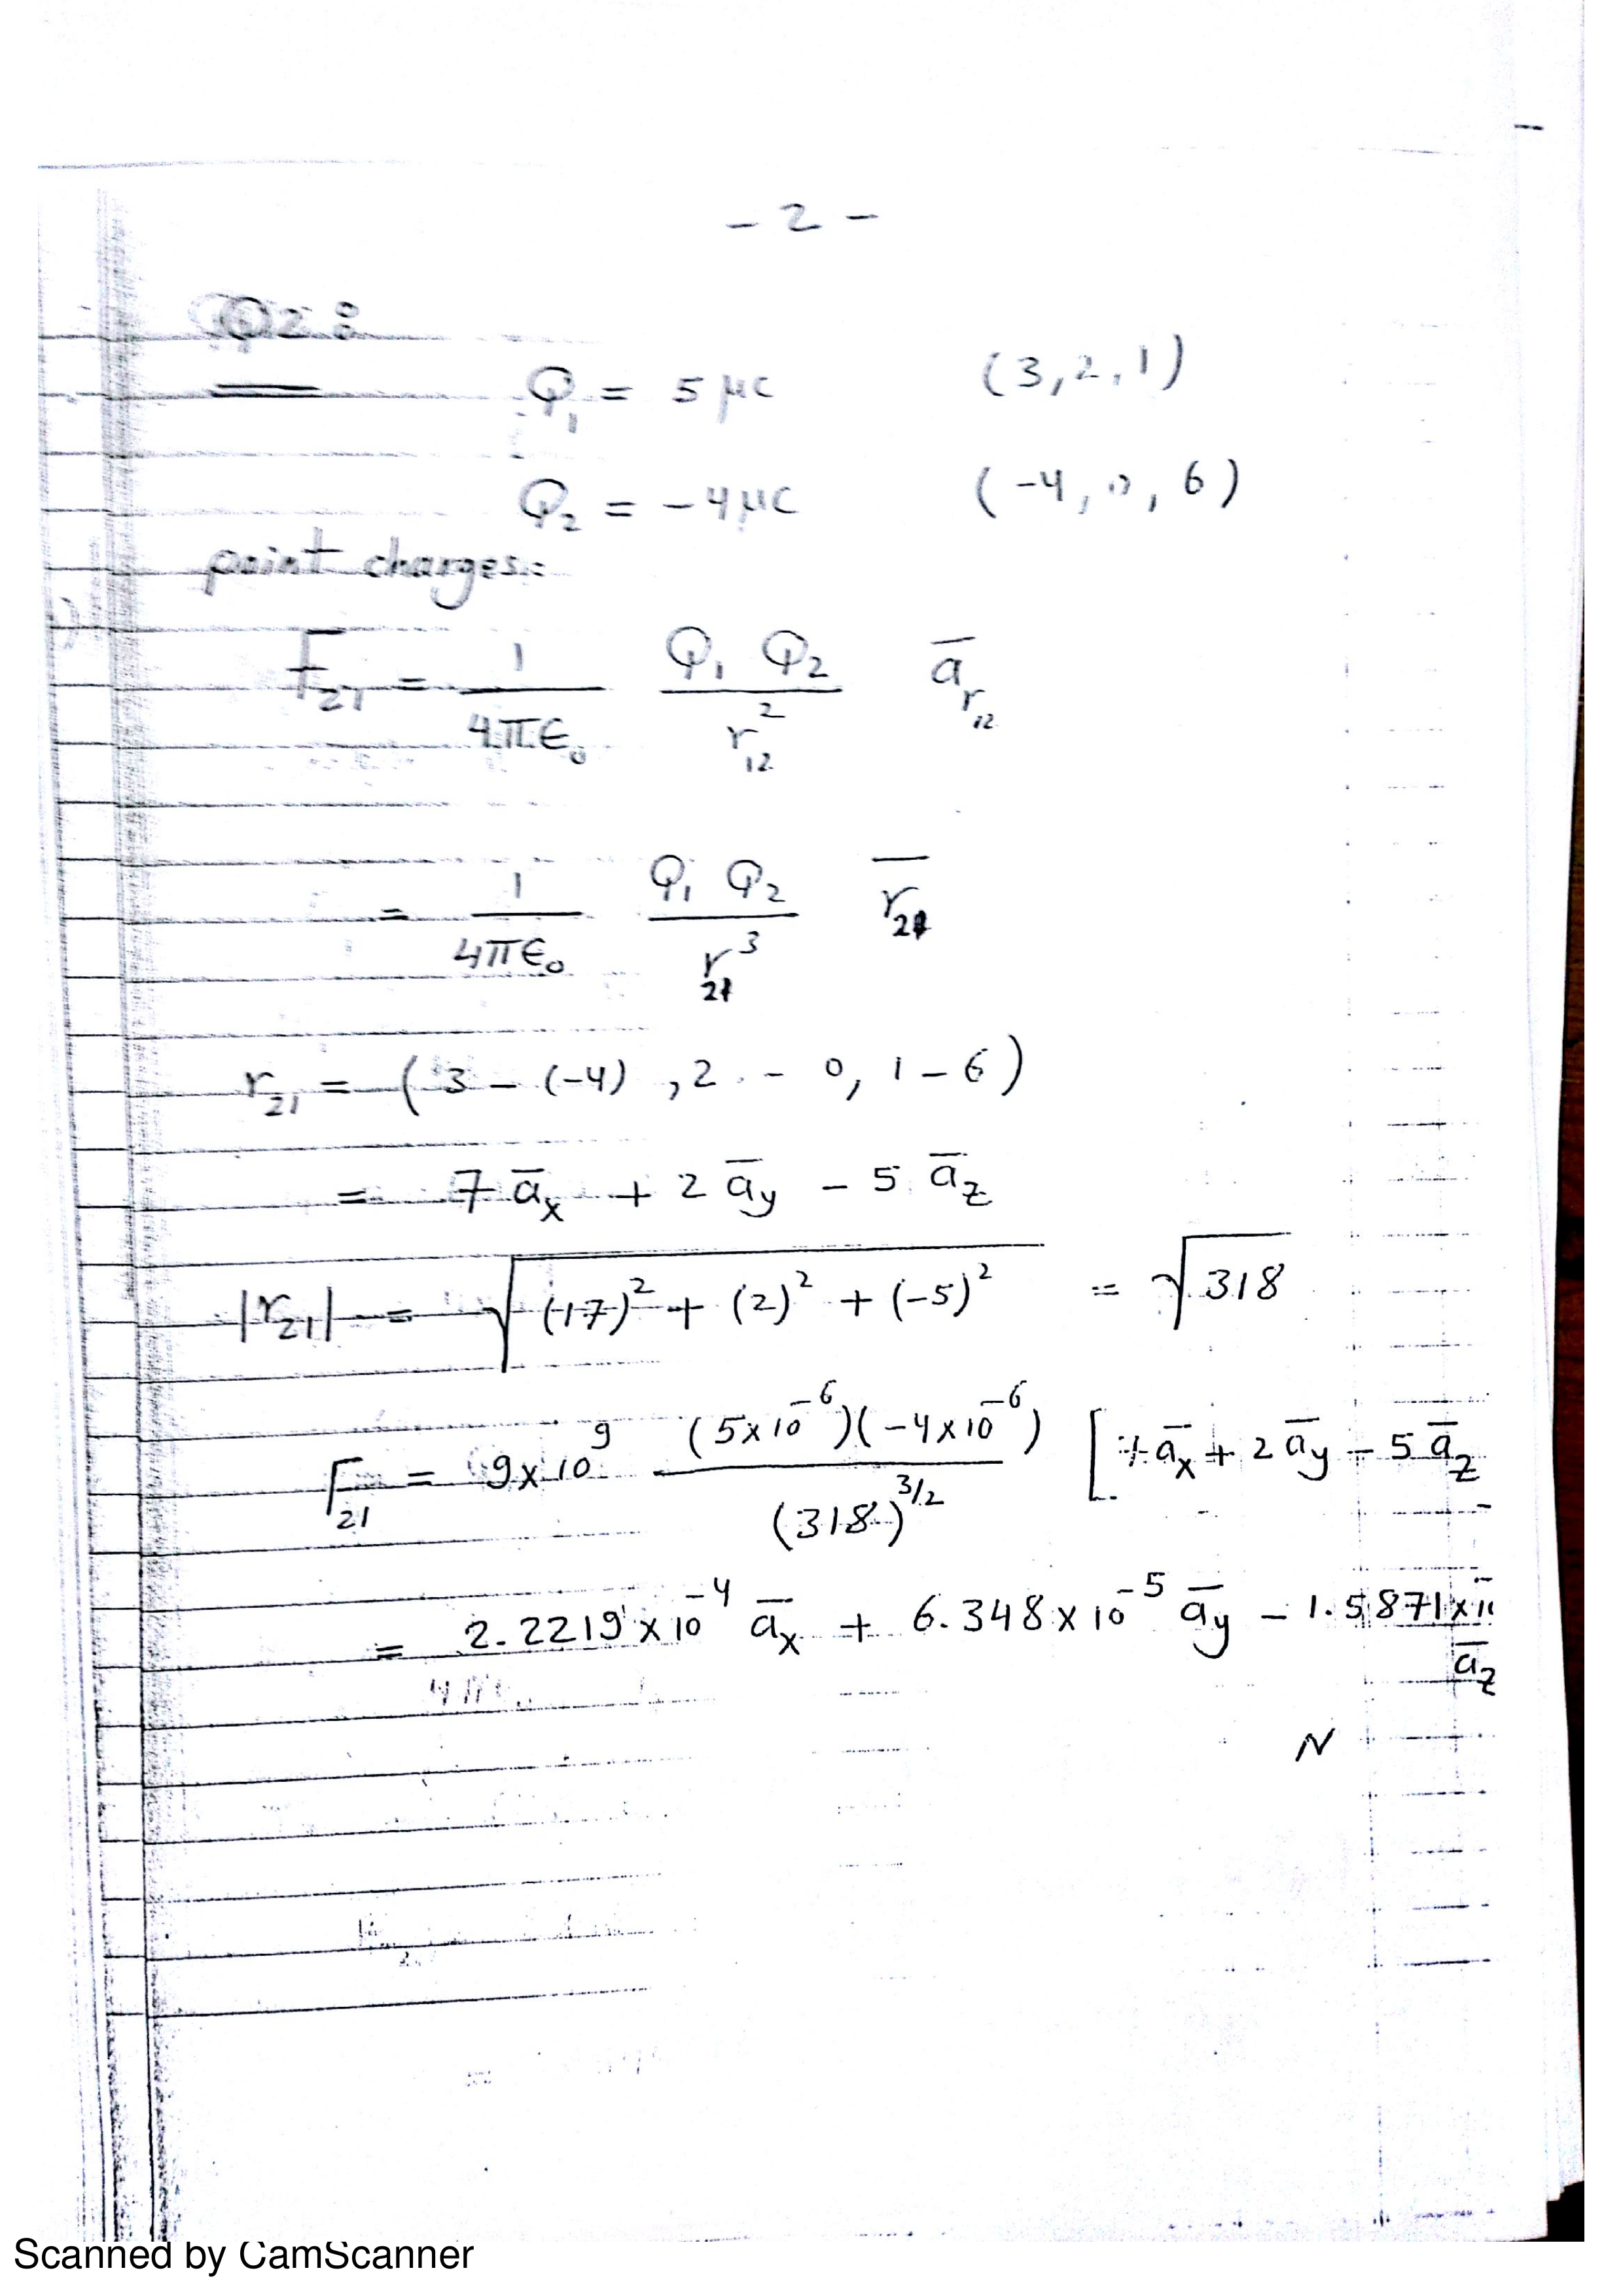 - 2 -
Q2 :
Q₁ = 5 μC (3, 2, 1)
Q₂ = - 4 μC (-4, 0, 6)
point charges:
F₂₁ = 1/(4πϵ₀) Q₁ Q₂/r₁₂² a̅_r₁₂
= 1/(4πϵ₀) Q₁ Q₂/r₂₁³ r̅₂₁
r₂₁ = (3 - (-4), 2 - 0, 1 - 6)
= 7 a̅x + 2 a̅y - 5 a̅z
|r₂₁| = √((17)² + (2)² + (-5)²) = √318
F₂₁ = 9x10⁹ (5x10⁻⁶)(-4x10⁻⁶)/(318)^3/2 [7 a̅x + 2 a̅y - 5 a̅z
= 2.2219 x 10⁻⁴ a̅x + 6.348 x 10⁻⁵ a̅y - 1.5871 x
a̅z
N
Scanned by CamScanner